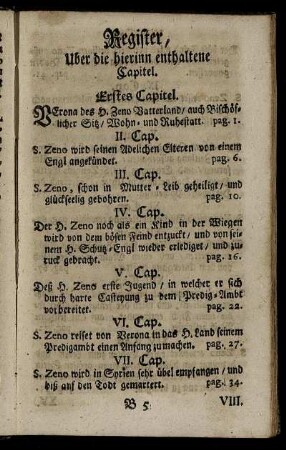 Register,
Uber die hierinn enthaltene
Capitel.
Erstes Capitel.
Verona des H. Zeno Vatterland/ auch Bischöf-
licher Sitz/ Wohn- und Ruhestatt. pag. 1.
II. Cap.
S. Zeno wird seinen Adelichen Elteren von einem
Engl angekündet. pag. 6.
III. Cap.
S. Zeno, schon in Mutter-Leib geheiligt/ und
glückseelig gebohren. pag. 10.
IV. Cap.
Der H. Zeno noch als ein Kind in der Wiegen
wird von dem bösen Feind entzuckt/ und von sei-
nem H. Schutz-Engl wieder erlediget/ und zu-
ruck gebracht. pag. 16.
V. Cap.
Deß H. Zens erste Jugend/ in welcher er sich
durch harte Casteyung zu dem Predig-Ambt
vorbereitet. pag. 22.
VI. Cap.
S. Zeno reiset von Verona in das H. Land seinem
Predigambt einen Anfang zu machen. pag. 27.
VII. Cap.
S. Zeno wird in Syrien sehr übel empfangen/ und
biß auf den Todt gemartert. pag. 34.
B 5 VIII.